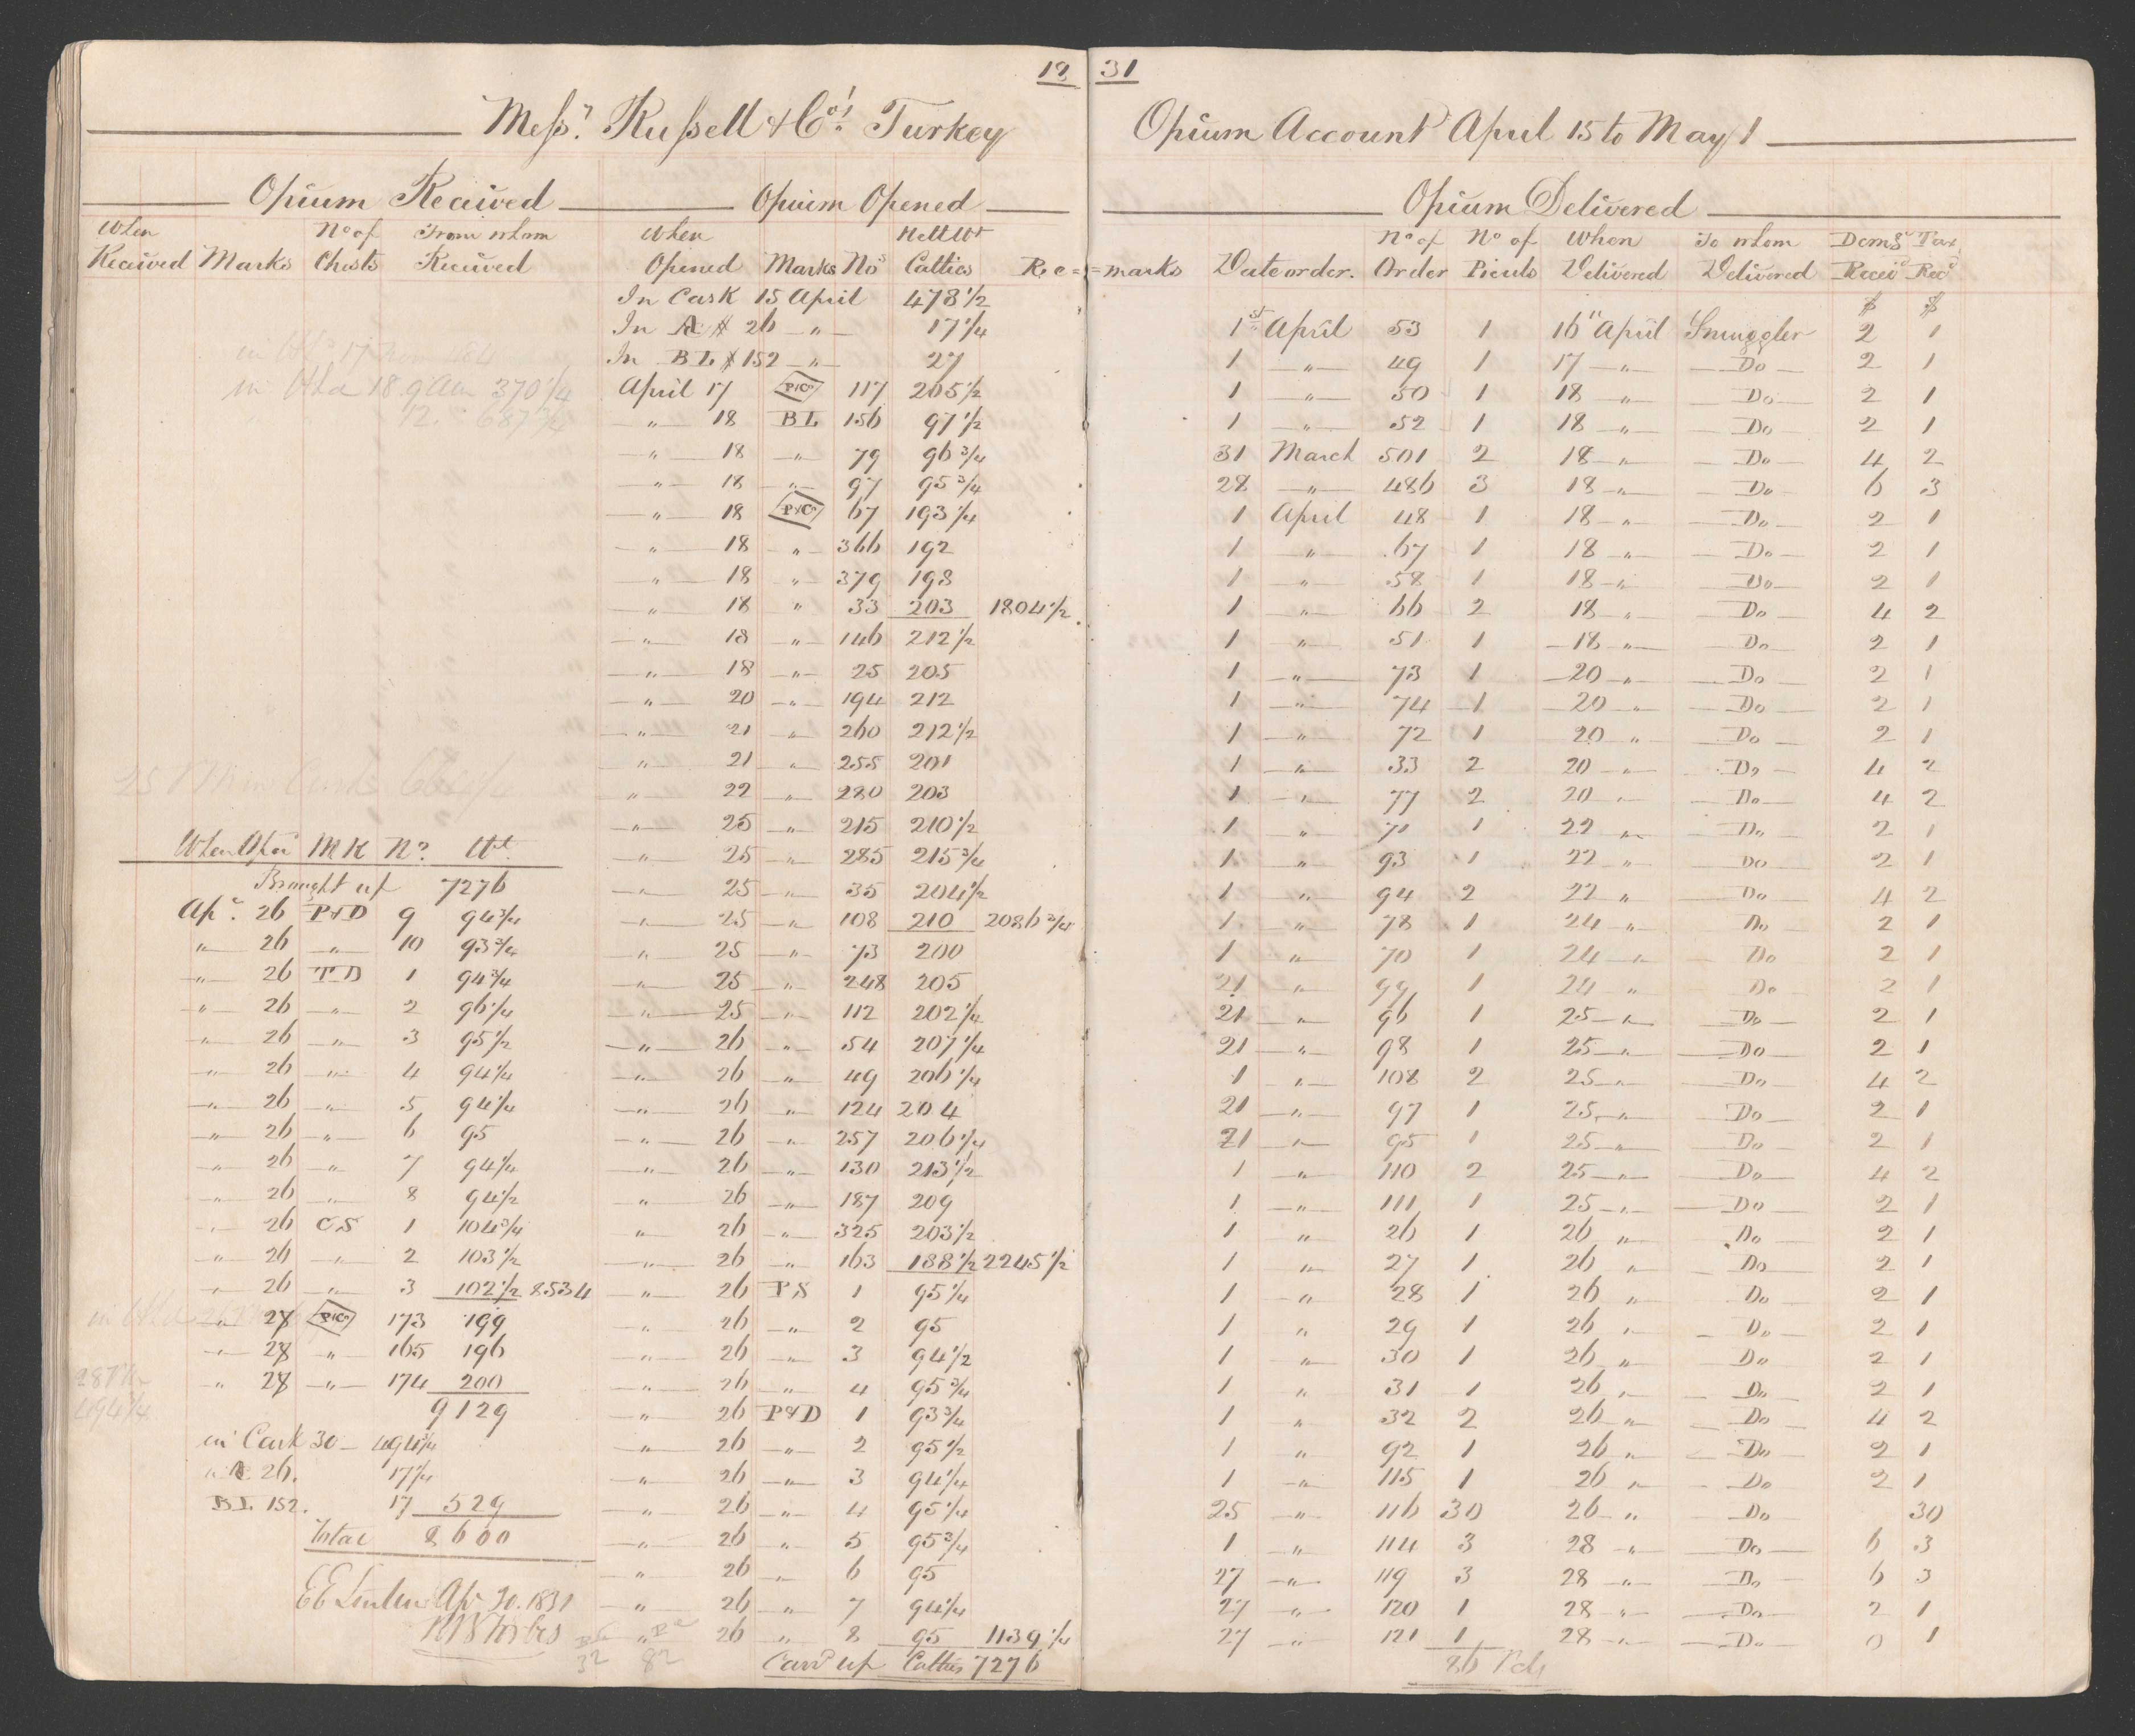 12 31
Mess.rs Russell & Co's Turkey Opium Account April 15 to May 1
Opium Received
When Received Marks No of Chests From whom Received
in Hhd 18 9 370 1/4
12. 687 3/4
When Open MK No. Wt.
Brought up 7276
Ap. 26 P&D 9 94 3/4
" 26 " 10 93 3/4
" 26 TD 1 94 3/4
" 26 " 2 96 1/4
" 26 " 3 95 1/2
" 26 " 4 94 1/4
" 26 " 5 94 1/4
" 26 " 6 95
" 26 " 7 94 1/4
" 26 " 8 94 1/2
" 26 CS 1 104 3/4
" 26 " 2 103 1/2
" 26 " 3 102 1/2 8534
" 28 P&Co 173 199
" 28 " 165 196
" 28 " 174 200
9129
in Cask 30 - 494 3/4
26. 17 1/4
BL 152. 17 529
Total 8600
EE Lintin Ap. 30. 1831
RB Forbes
32 82
Opium Opened
When Opened Marks Nos Nett Wt Catties Re=
In Cask 15 April 478 1/2
In A # 26 " 17 1/4
In BL # 152 " 27
April 17 P&Co 117 205 1/2
" 18 BL 156 97 1/2
" 18 " 79 96 3/4
" 18 " 97 95 3/4
" 18 P&Co 67 193 1/4
" 18 " 366 192
" 18 " 379 198
" 18 " 33 203 1804 1/2
" 18 " 146 212 1/2
" 18 " 25 205
" 20 " 194 212
" 21 " 260 212 1/2
" 21 " 255 201
" 22 " 280 203
" 25 " 215 210 1/2
" 25 " 285 215 3/4
" 25 " 35 204 1/2
" 25 " 108 210 2086 3/4
" 25 " 73 200
" 25 " 248 205
" 25 " 112 202 1/4
" 26 " 54 207 1/4
" 26 " 49 206 1/4
" 26 " 124 204
" 26 " 257 206 1/4
" 26 " 130 213 1/2
" 26 " 187 209
" 26 " 325 203 1/2
" 26 " 163 188 1/2 2245 1/2
" 26 PS 1 95 1/4
" 26 " 2 95
" 26 " 3 94 1/2
" 26 " 4 95 3/4
" 26 P&D 1 93 3/4
" 26 " 2 95 1/2
" 26 " 3 94 1/4
" 26 " 4 95 1/4
" 26 " 5 95 3/4
" 26 " 6 95
" 26 " 7 94 1/4
" 26 " 8 95 1139 1/4
Carrd up Catties 7276
Opium Delivered
=marks Date order. No of Order No of Piculs When Delivered To whom Delivered Demge Receivd Tax Recd
$ $
1st April 53 1 16" April Smuggler 2 1
1 " 49 1 17 " Do 2 1
1 " 50 1 18 " Do 2 1
1 " 52 1 18 " Do 2 1
31 March 501 2 18 " Do 4 2
28 " 486 3 18 " Do 6 3
1 April 48 1 18 " Do 2 1
1 " 67 1 18 " Do 2 1
1 " 58 1 18 " Do 2 1
1 " 66 2 18 " Do 4 2
1 " 51 1 18 " Do 2 1
1 " 73 1 20 " Do 2 1
1 " 74 1 20 " Do 2 1
1 " 72 1 20 " Do 2 1
1 " 33 2 20 " Do 4 2
1 " 77 2 20 " Do 4 2
1 " 71 1 22 " Do 2 1
1 " 93 1 22 " Do 2 1
1 " 94 2 22 " Do 4 2
1 " 78 1 24 " Do 2 1
1 " 70 1 24 " Do 2 1
21 " 99 1 24 " Do 2 1
21 " 96 1 25 " Do 2 1
21 " 98 1 25 " Do 2 1
1 " 108 2 25 " Do 4 2
21 " 97 1 25 " Do 2 1
21 " 95 1 25 " Do 2 1
1 " 110 2 25 " Do 4 2
1 " 111 1 25 " Do 2 1
1 " 26 1 26 " Do 2 1
1 " 27 1 26 " Do 2 1
1 " 28 1 26 " Do 2 1
1 " 29 1 26 " Do 2 1
1 " 30 1 26 " Do 2 1
1 " 31 1 26 " Do 2 1
1 " 32 2 26 " Do 4 2
1 " 92 1 26 " Do 2 1
1 " 115 1 26 " Do 2 1
25 " 116 30 26 " Do 30
1 " 114 3 28 " Do 6 3
27 " 119 3 28 " Do 6 3
27 " 120 1 28 " Do 2 1
27 " 121 1 28 " Do 0 1
86 Pcls